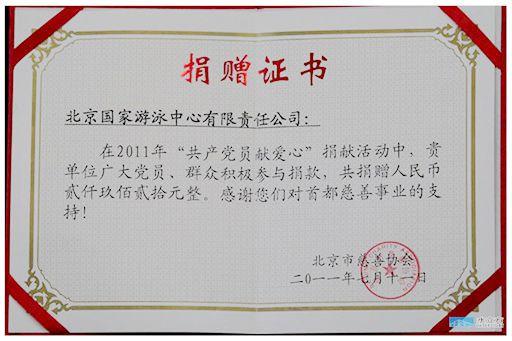 捐赠证书
北京国家游泳中心有限责任公司：
在2011年“共产党员献爱心”捐献活动中，贵
单位广大党员、群众积极参与捐款，共捐赠人民币
贰仟玖佰贰拾元整。感谢您们对首都慈善事业的支
持！
北京市慈善协会
二〇一一年七月十一日